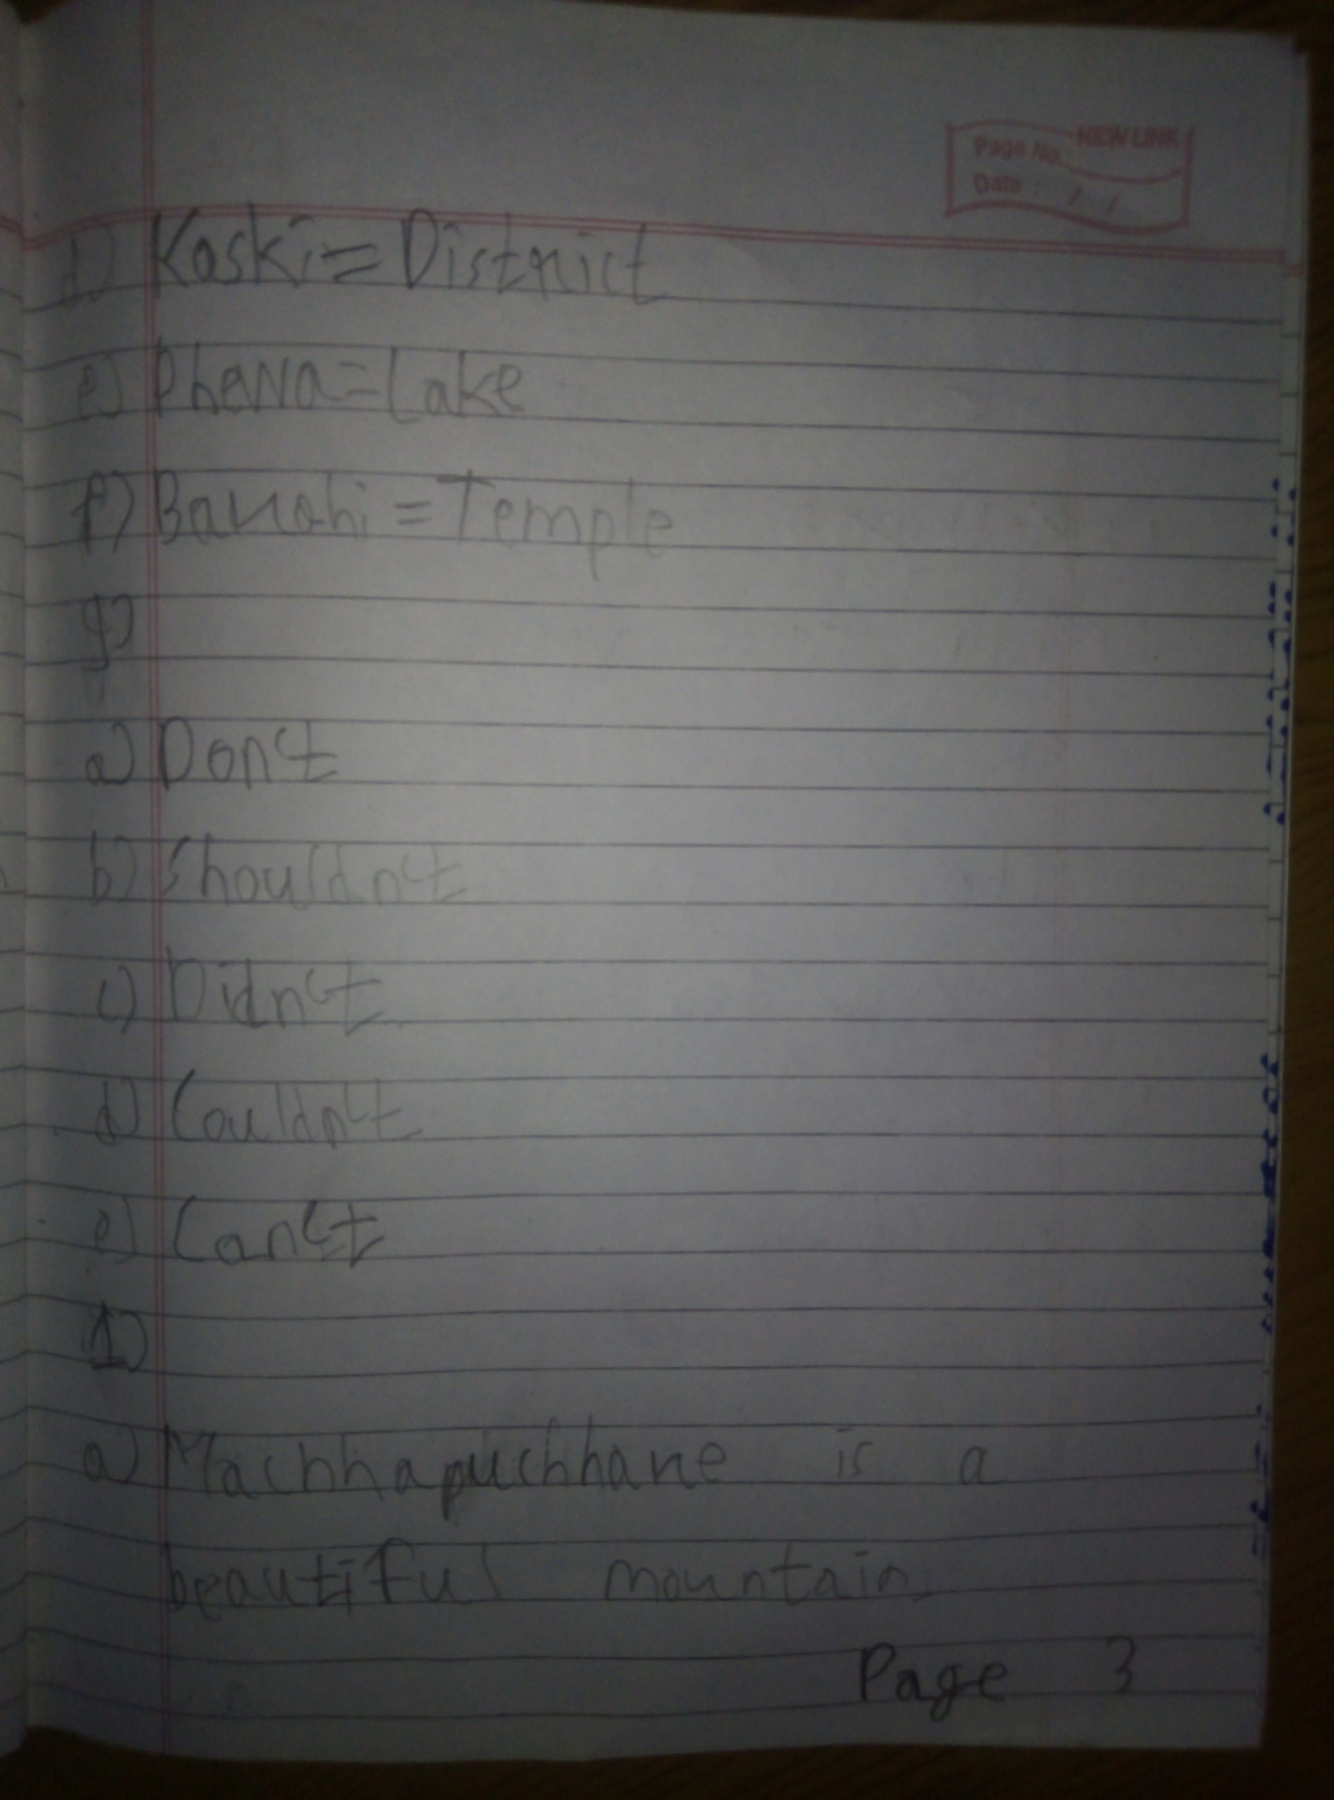 NEW LINK
Page No.:
Date : / /
d) Kaski = District
e) Phewa = Lake
f) Barahi = Temple
g)
a) Don't
b) Shouldn't
c) Didn't
d) Couldn't
e) Can't
1)
a) Machhapuchhare is a
beautiful mountain.
Page 3